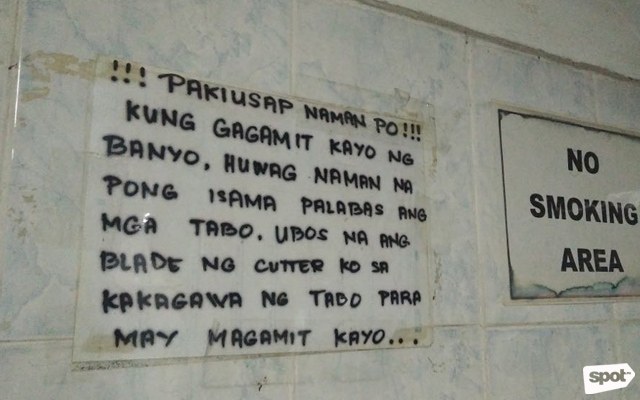 !!! PAKIUSAP NAMAN PO!!!
KUNG GAGAMIT KAYO NG
BANYO, HUWAG NAMAN NA
PONG ISAMA PALABAS ANG
MGA TABO. UBOS NA ANG
BLADE NG CUTTER KO SA
KAKAGAWA NG TABO PARA
MAY MAGAMIT KAYO...
NO
SMOKING
AREA
spot